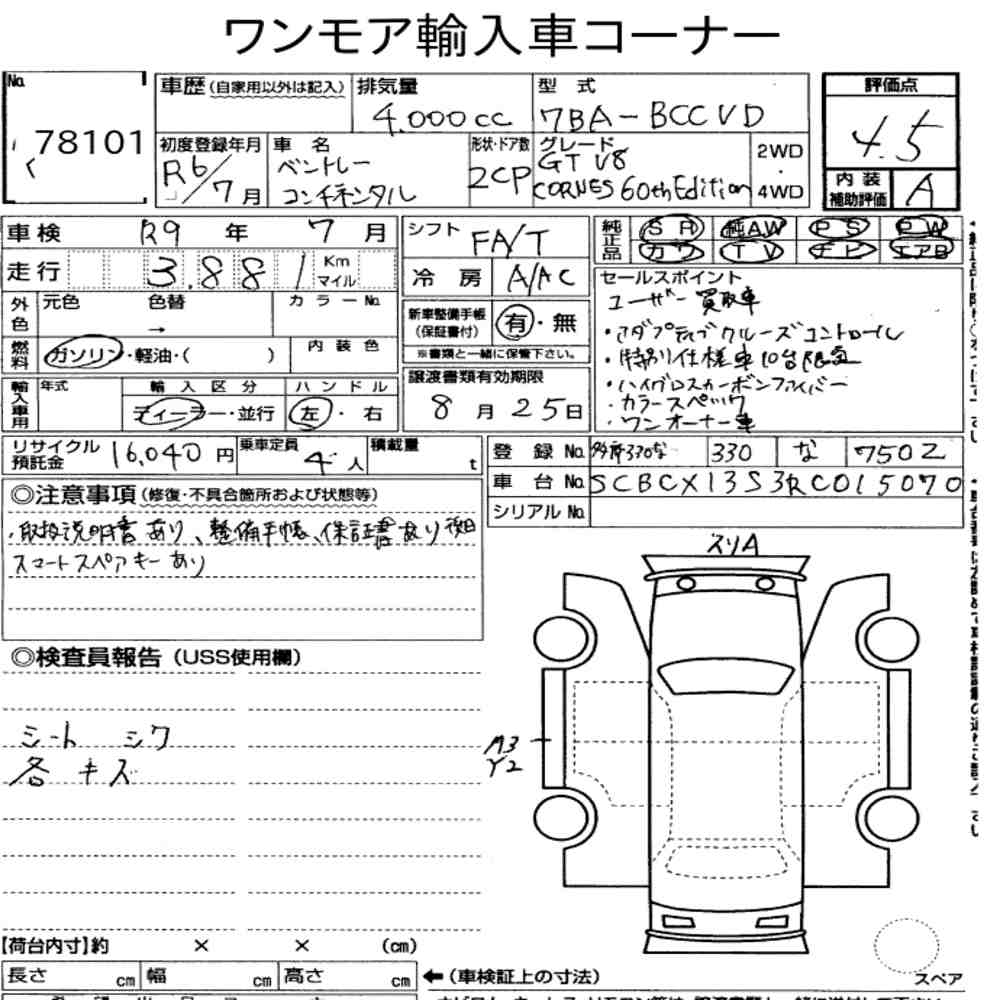 ワンモア輸入車コーナー
No. 78101
車歴(自家用以外は記入)
排気量 4.000cc
型式 7BA-BCCVD
評価点 4.5
内装補助評価 A
初度登録年月 R6/7月
車名 ベントレー コンチネンタル
形状・ドア数 2CP
グレード GT V8 CORNES 60th Edition
2WD・4WD
車検 R9年 7月
走行 3.881 Km マイル
シフト FA/T
冷房 A/AC
純正品 SR 純AW PS PW
カワ TV ナビ エアB
外色 元色 色替 → カラーNo.
燃料 ガソリン・軽油・( ) 内装色
新車整備手帳(保証書付) 有・無
※書類と一緒に保管下さい。
セールスポイント
ユーザー買取車
・アダプティブクルーズコントロール
・特別仕様車10台限定
・ハイグロスカーボンファイバー
・カラースペック
・ワンオーナー車
輸入車用 年式 輸入区分 ディーラー・並行 ハンドル 左・右
譲渡書類有効期限 8月25日
リサイクル預託金 16,040円
乗車定員 4人
積載量 t
登録No. 330 な 7502
車台No. SCBCX13S3RC015070
シリアルNo.
◎注意事項(修復・不具合箇所および状態等)
・取扱説明書あり、整備手帳、保証書あり
スマートスペアキーあり
◎検査員報告(USS使用欄)
シート シワ
各 キズ
スリA
A3
Y2
【荷台内寸】約 × × (cm)
長さ cm 幅 cm 高さ cm
←(車検証上の寸法)
スペア